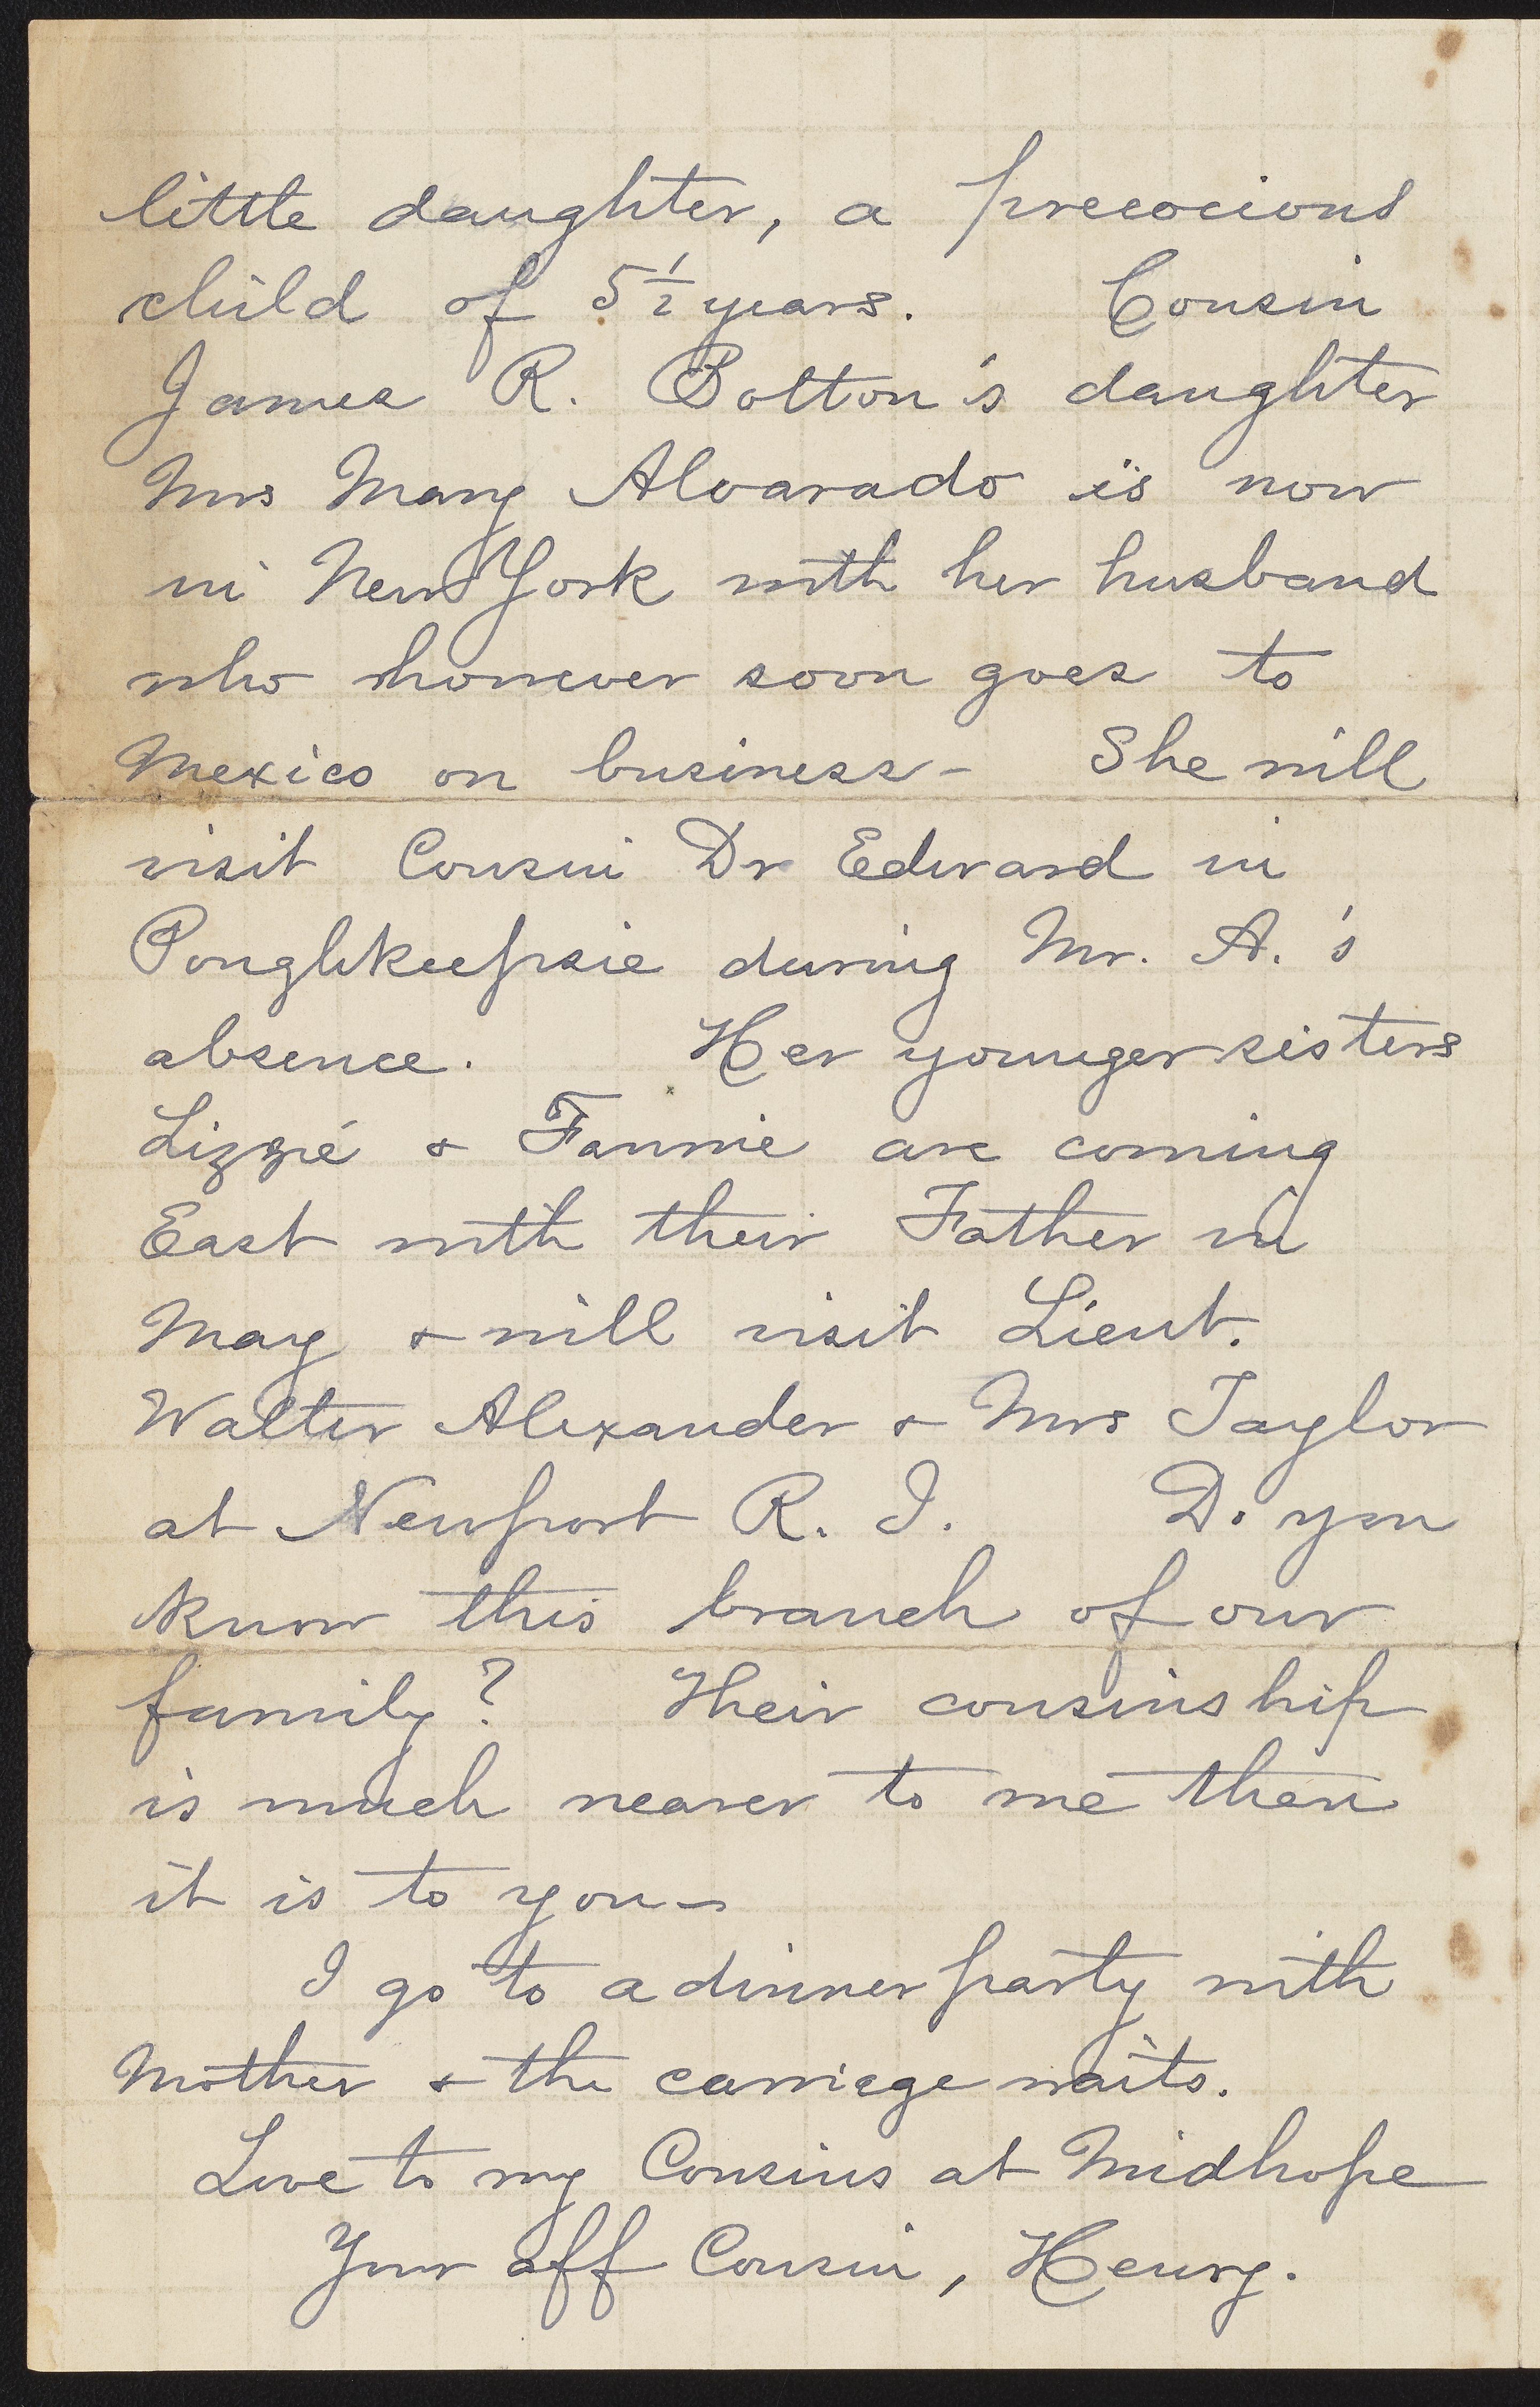 little daughter, a precocious
child of 5½ years. Cousin
James R. Bolton's daughter
Mrs Mary Alvarado is now
in New York with her husband
who however soon goes to
Mexico on business - She will
visit Cousin Dr Edward in
Poughkeepsie during Mr. A.'s
absence. Her younger sisters
Lizzie & Fannie are coming
East with their Father in
May & will visit Lieut.
Walter Alexander & Mrs Taylor
at Newport R. I. Do you
know this branch of our
family? Their cousinship
is much nearer to me than
it is to you -
I go to a dinner party with
Mother & the carriage waits.
Love to my Cousins at Midhope
Your aff Cousin, Henry.